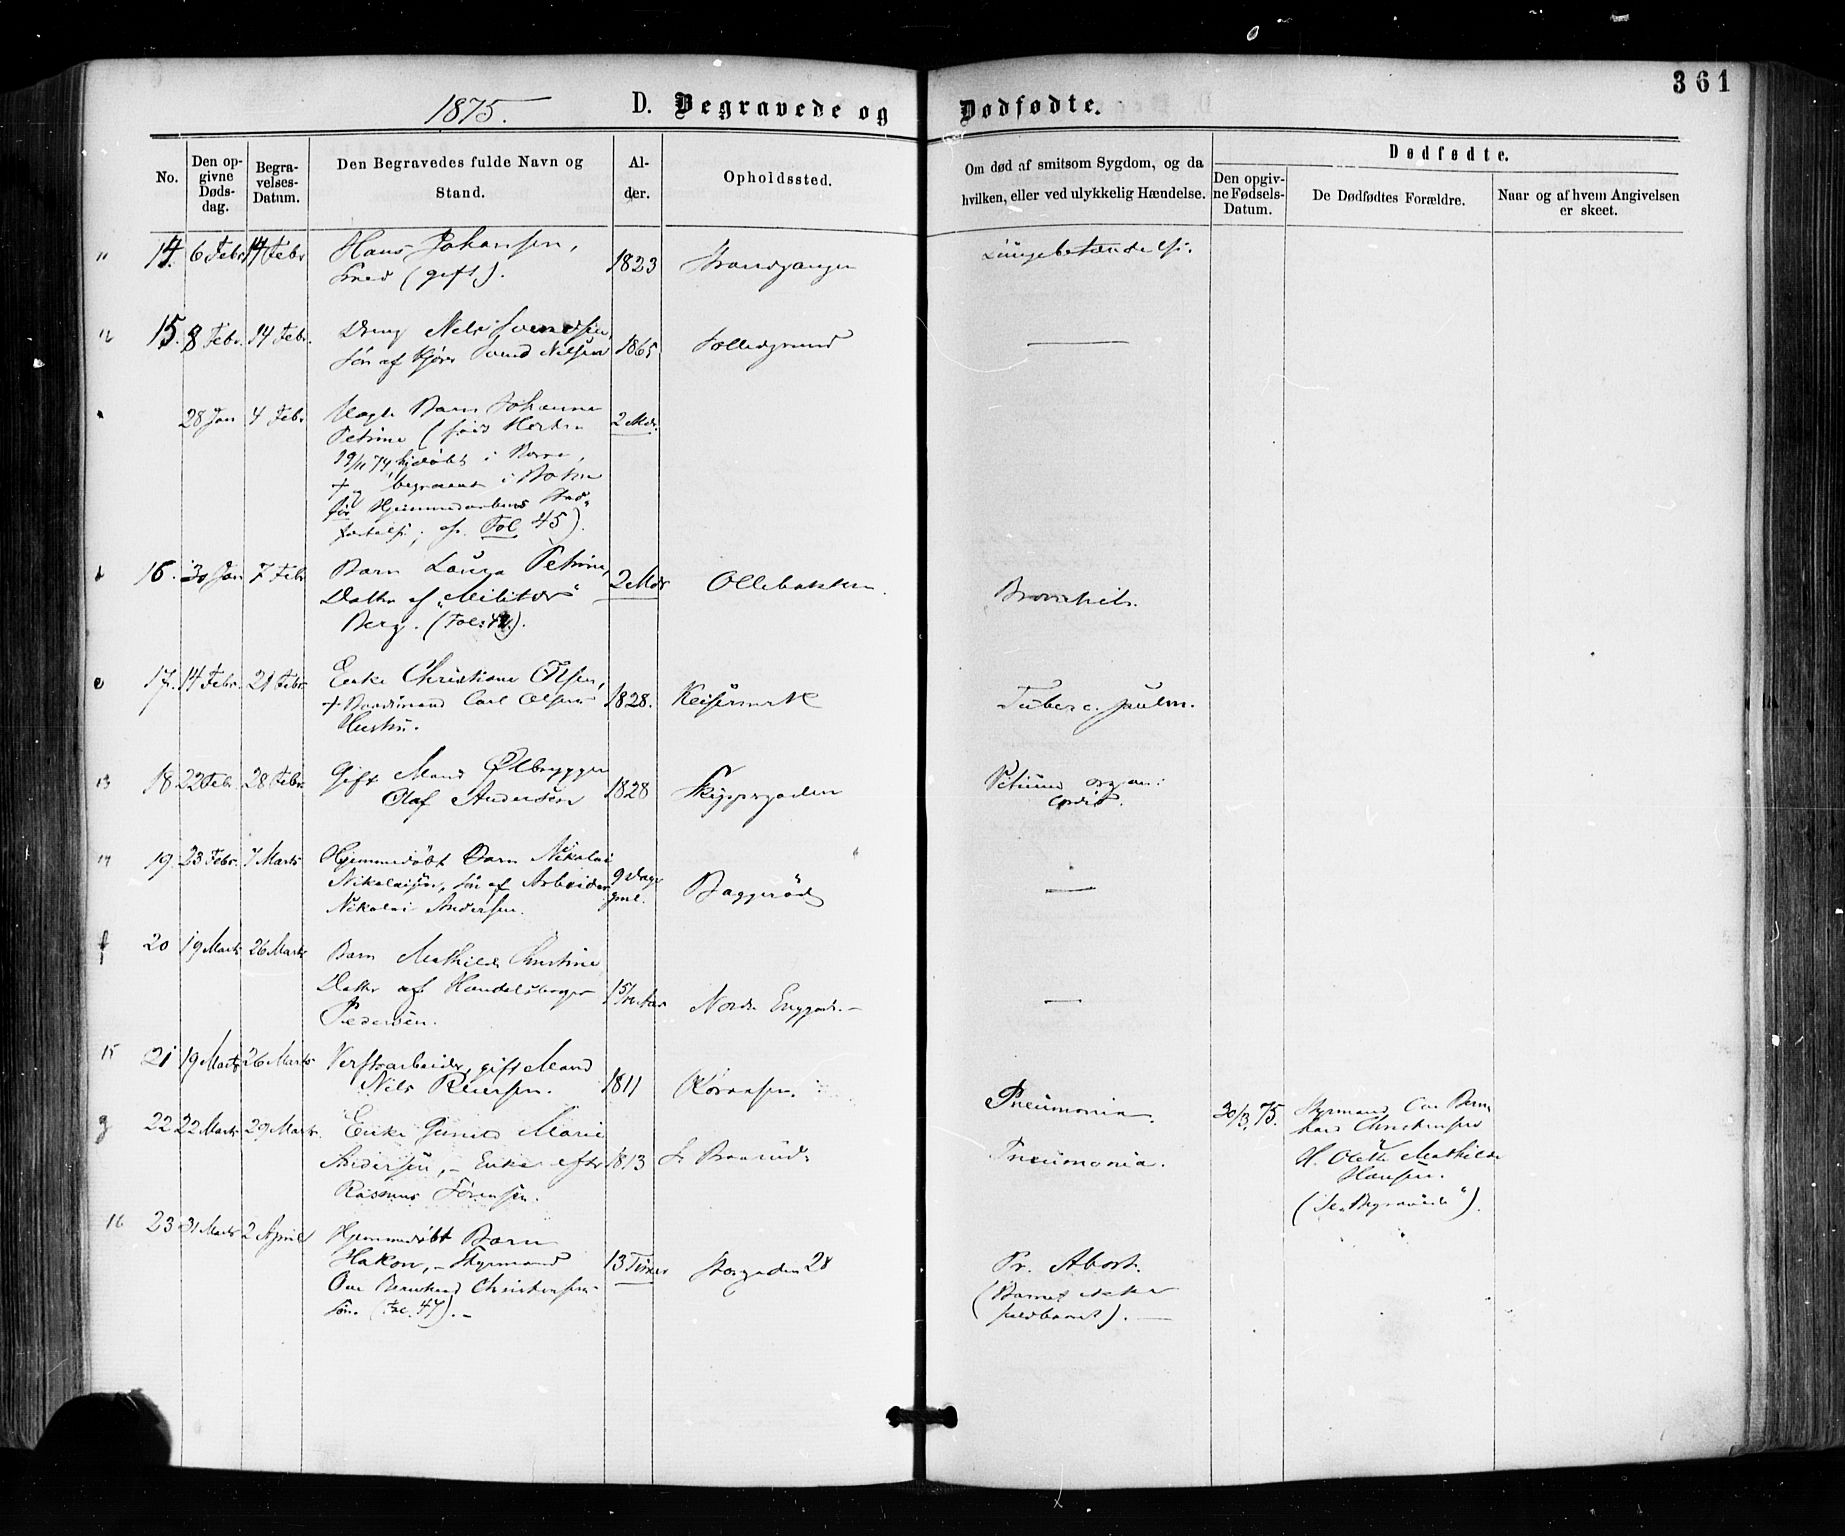 361
1875. D. Begravede og Dødfødte.
No.
Den op-
givne
Døds-
dag.
Begra-
velses-
Datum.
Den Begravedes fulde Navn og
Stand.
Al-
der.
Opholdssted.
Om død af smitsom Sygdom, og da
hvilken, eller ved ulykkelig Hændelse.
Dødfødte.
Den opgiv-
ne Fødsels-
Datum.
De Dødfødtes Forældre.
Naar og af hvem Angivelsen
er skeet.
11 14. 6 Febr 14 Febr Hans Johansen, 1823 Lungebetændelse.
(gift).
12 15. 8 Febr. 14 Febr. Dreng Nels Svendsen, 1865 —
Søn af Svend Nilsen
28 Jan 4 Febr Barn Johanne 2 Mdr.
Petrine (født Horten
19/11 74, hjdøbt i Borre,
+ begravet i
før Hjemmedaabens Stad-
fæstelse; cfr. Fol 45).
b 16. 30 Jan 7 Febr Barn Laura Petrine, 2 Mdr Ollebakken. Bronchit.
Datter af "Militær"
Berg. (Fol. ).
e 17. 14 Febr. 21 Febr. Enke Christiane Olsen, 1828. Keisermark Tuberc. pulm.
+ Carl Olsens
Hustru.
13 18 22 Febr. 28 Febr. Gift Mand Ølbrygger 1828 Skippergaden Vitium organ:
Olaf Andersen cordis.
14 19. 23 Febr. 7 Marts Hjemmedøbt Barn Nikolai 9 Dage Baggerød —
Nikolaisen, Søn af Arbeider gml.
Nikolai Andersen.
f 20 19 Marts 26 Marts Barn Mathilde Christine 1 5/12 Aar Nordre Enggade. —
Datter af Handelsborger
Pedersen.
15 21 19 Marts 26 Marts Verftsarbeider, gift Mand 1811 Pneumonia.
Nils Reiersen.
g 22 22 Marts 29 Marts. Enke Gunild Marie 1813 Pneumonia.
Andersen, – Enke efter
Rasmus Sørensen.
30/3, 75. Styrmand Ove Bern-
hard Christensen
H. Oleth Mathilde
Hansen.
(Se "Begravede").
16 23 31 Marts 2 April Hjemmedøbt Barn 13 Timer Storgaden 28 Pr. Abort.
Hakon, – Styrmand (Barnet ikke
Ove Bernhard Christensens fuldbaaret). —
Søn. (Fol. 47). –